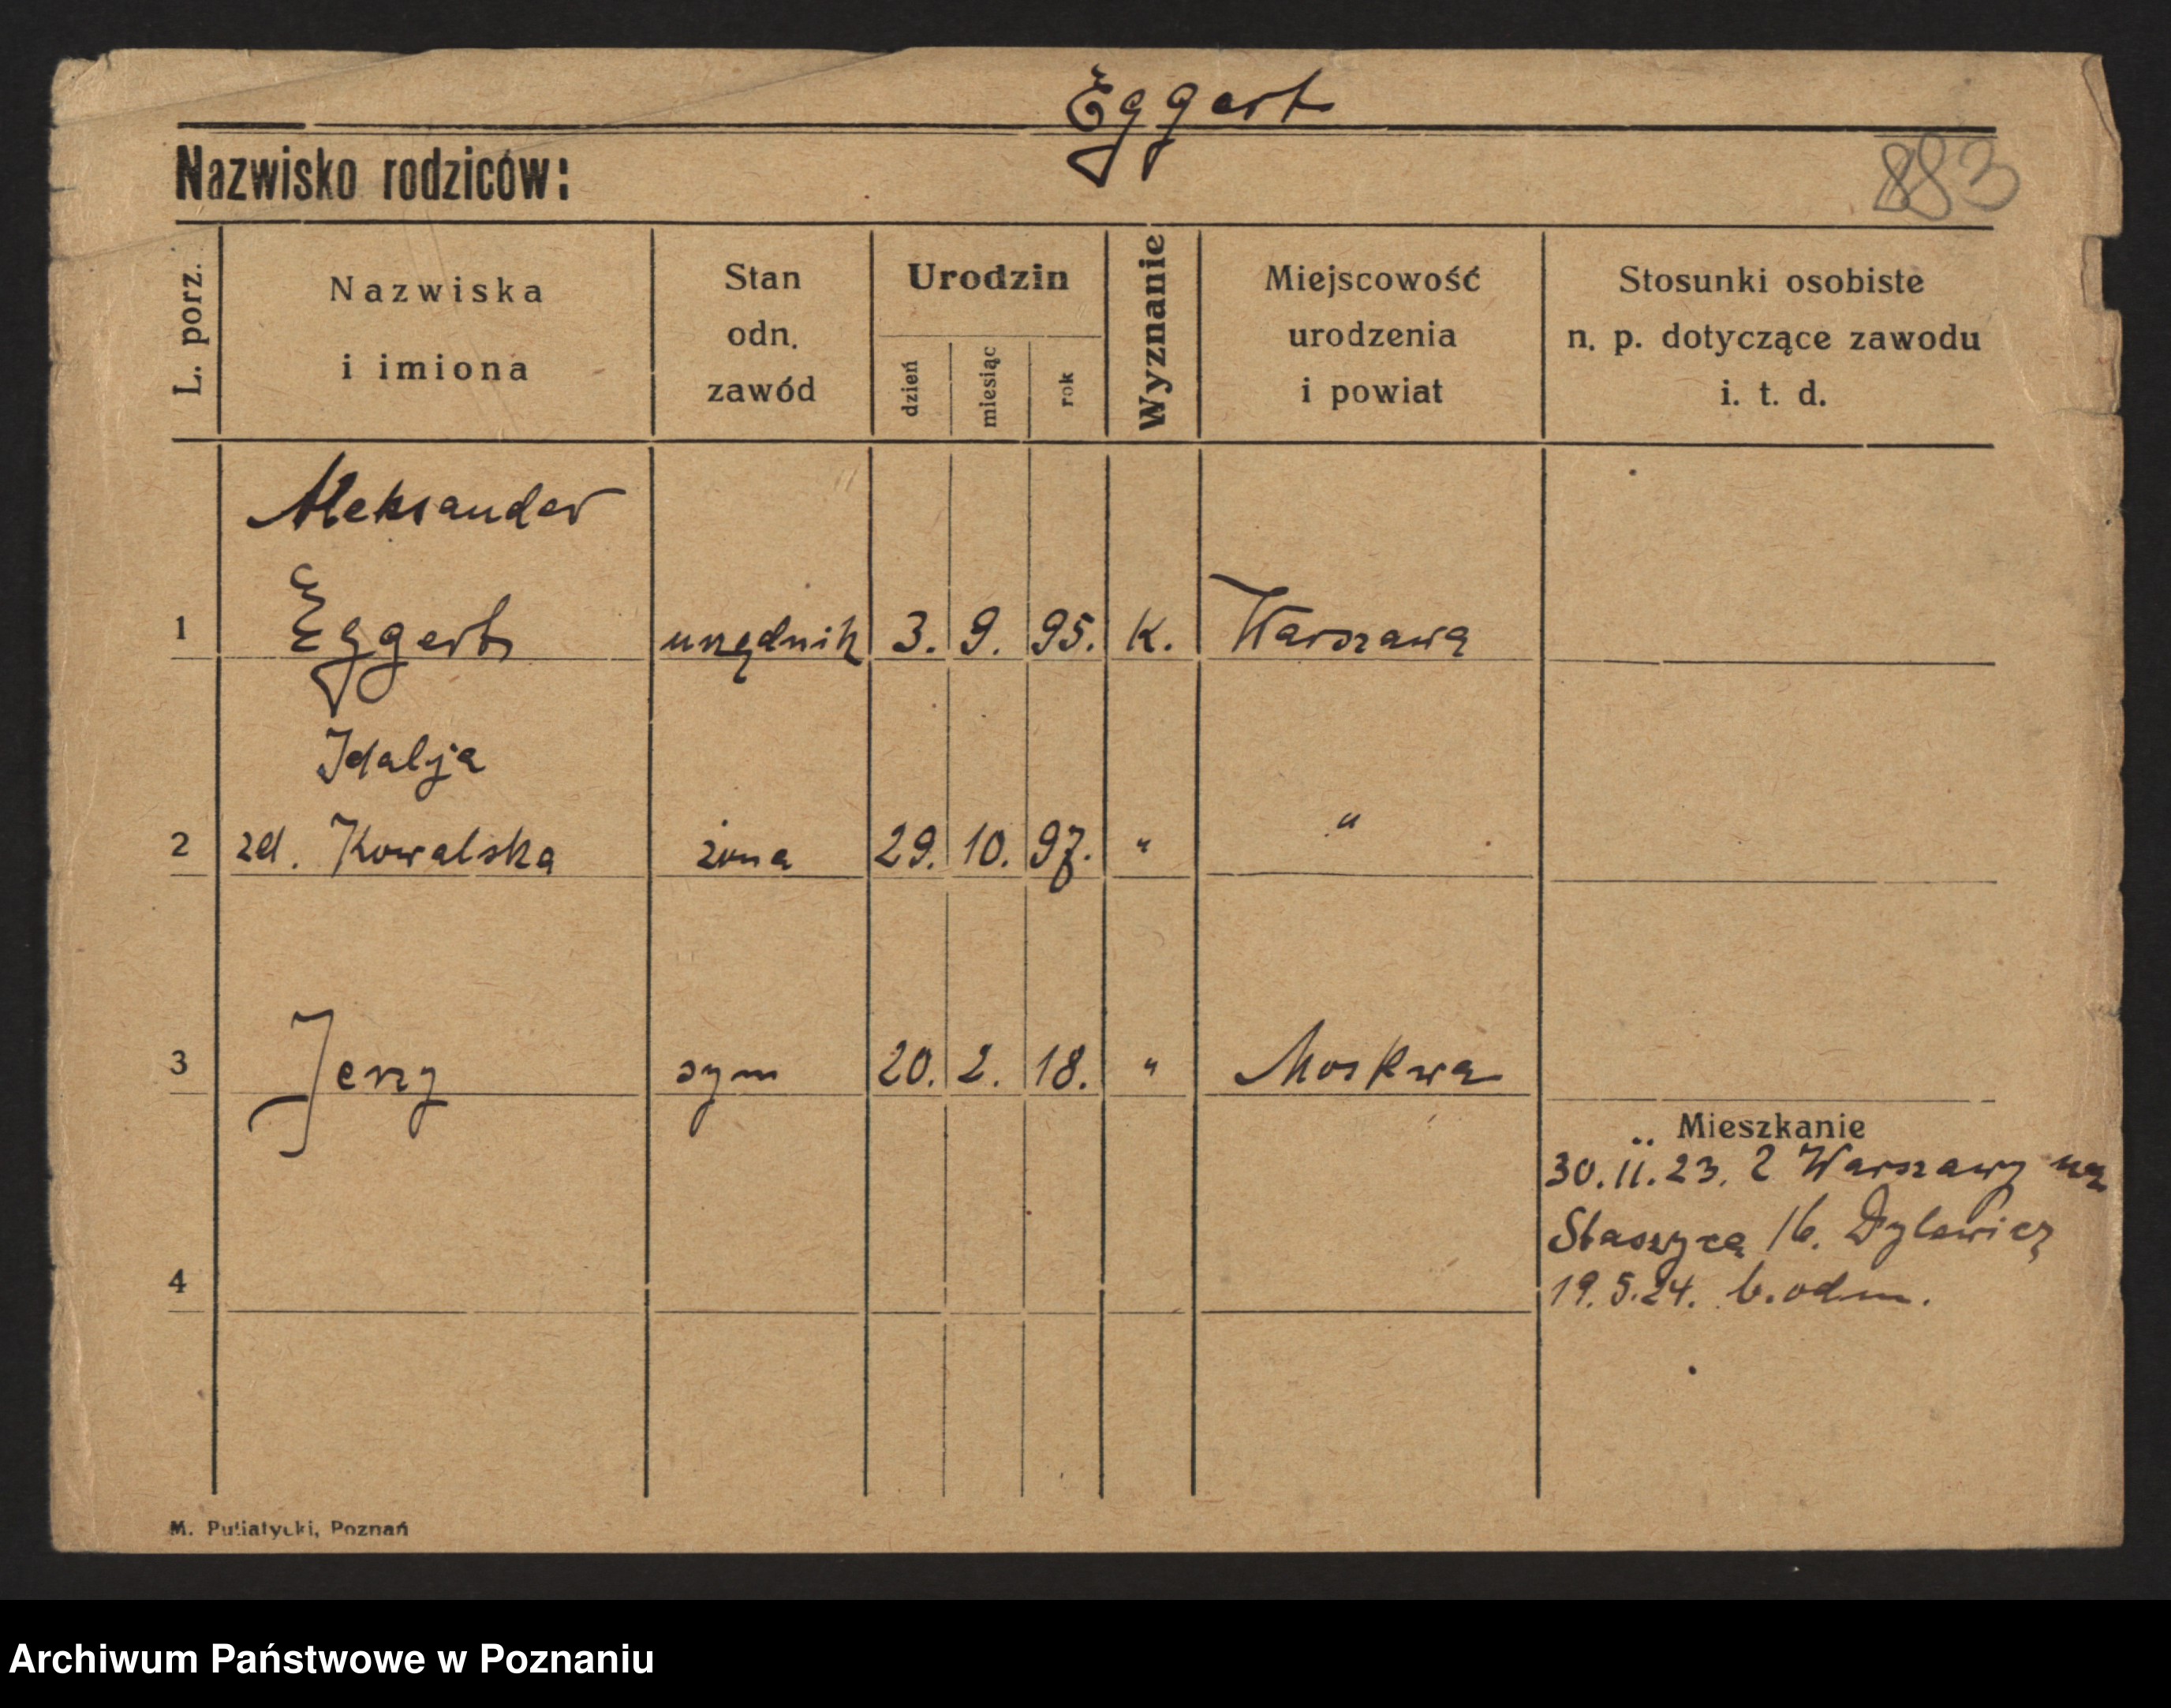 Eggert
Nazwisko rodziców:
883
L. porz.
Nazwiska
i imiona
Stan
odn.
zawód
Urodzin
dzień
miesiąc
rok
Wyznanie
Miejscowość
urodzenia
i powiat
Stosunki osobiste
n. p. dotyczące zawodu
i. t. d.
Aleksander
1 Eggert urzędnik 3. 9. 95. K. Warszawa
Idalja
2 zd. Kowalska żona 29. 10. 97. " "
3 Jerzy syn 20. 2. 18. " Moskwa
Mieszkanie
30.11.23. Z Warszawy na
Staszyca 16. Dylewicz
4
19.5.24. b.odm.
M. Putiatycki, Poznań
Archiwum Państwowe w Poznaniu